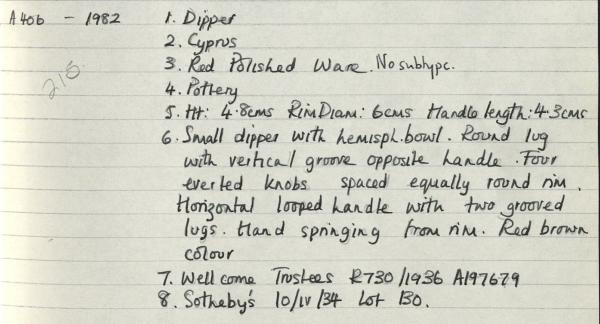 A406 - 1982
1. Dipper
2. Cyprus
215
3. Red Polished Ware. No subtype.
4. Pottery
5. Ht: 4.8cms Rim Diam: 6cms Handle length: 4.3cms
6. Small dipper with hemisph. bowl. Round lug
with vertical groove opposite handle. Four
everted knobs spaced equally round rim.
Horizontal looped handle with two grooved
lugs. Hand springing from rim. Red brown
colour
7. Wellcome Trustees R730/1936 A197679
8. Sotheby's 10/IV/34 Lot 130.